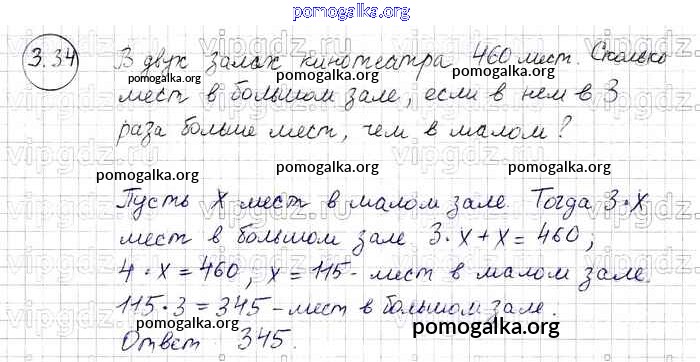 pomogalka.org
3.34 В двух залах кинотеатра 460 мест. Сколько
pomogalka.org pomogalka.org
мест в большом зале, если в нем в 3
раза больше мест, чем в малом?
pomogalka.org pomogalka.org
Пусть x мест в малом зале. Тогда 3·x
мест в большом зале 3·x+x=460;
pomogalka.org pomogalka.org
4·x=460, x=115- мест в малом зале.
115·3=345-мест в большом зале.
pomogalka.org pomogalka.org
Ответ 345.